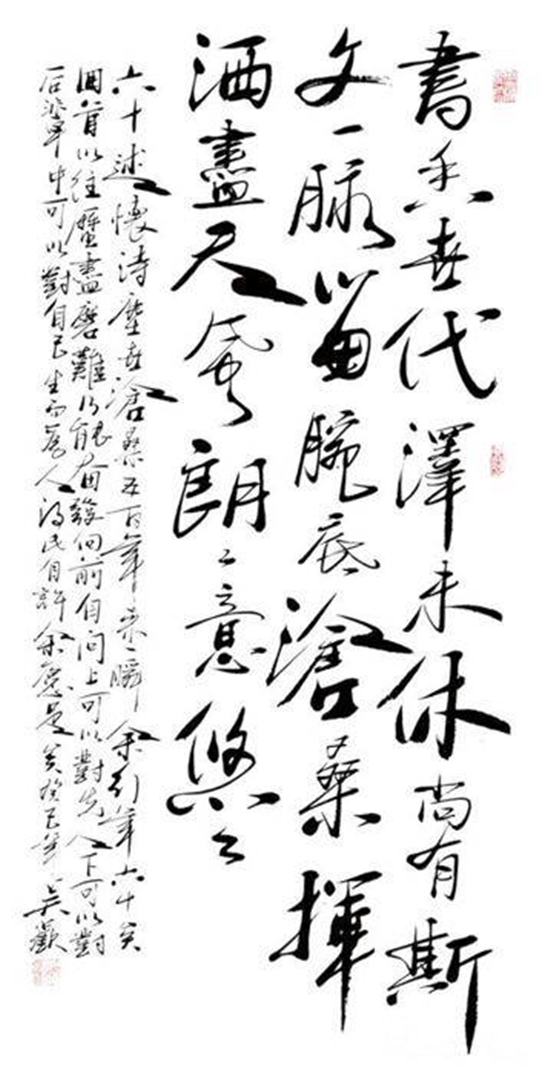 書香世代澤未休尚有斯
文一脈留腕底滄桑揮
洒盡天風朗々意悠々
六十述懷詩塵世滄桑五百年來一瞬余行年六十矣
回首以往歷盡磨難仍能奮發向前自問上可以對先人下可以對
后輩中可以對自己生而為人得此自許余愿足矣癸巳年吳歡